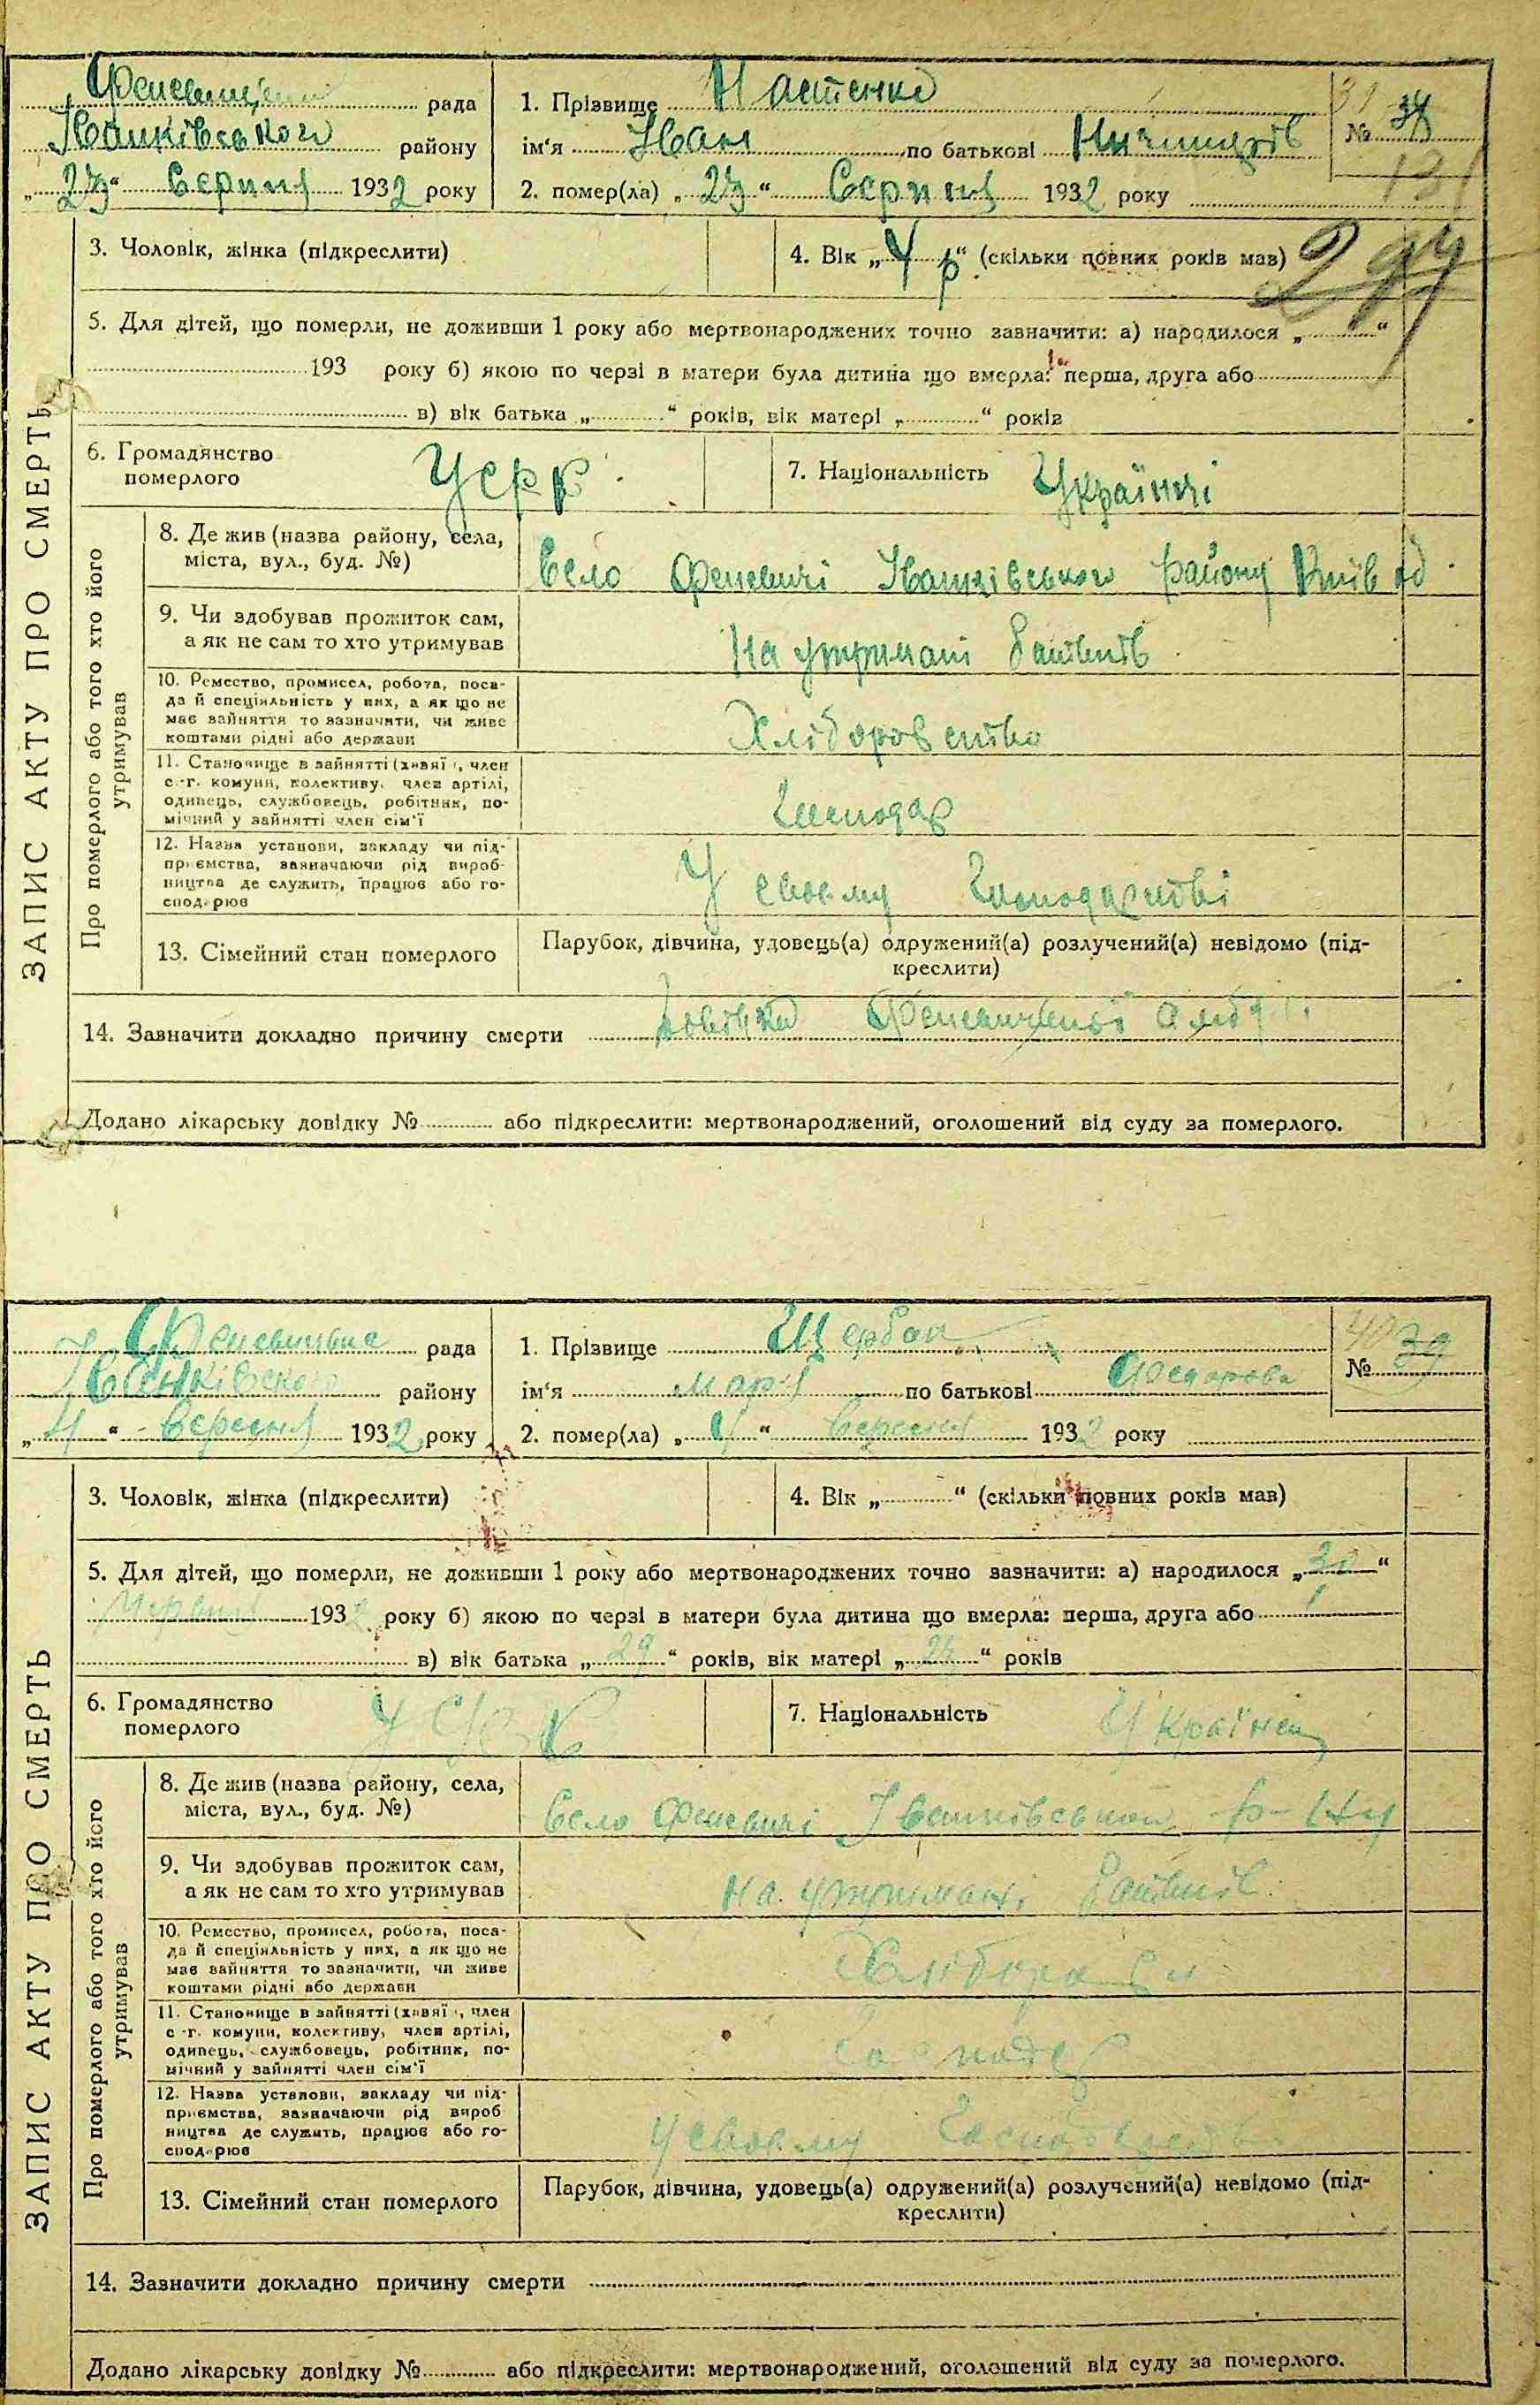 рада
Іванківського району
„23“ Серпня 1932 року
1. Прізвище Настенко
ім'я Іван по батькові
2. помер(ла) „23“ Серпня 1932 року
№ 38
3. Чоловік, жінка (підкреслити)
4. Вік „4 р“ (скільки повних років мав)
5. Для дітей, що померли, не доживши 1 року або мертвонароджених точно зазначити: а) народилося „ “
193 року б) якою по черзі в матери була дитина що вмерла: перша, друга або
в) вік батька „ “ років, вік матері „ “ років
6. Громадянство
померлого
УСРР
7. Національність
ЗАПИС АКТУ ПРО СМЕРТЬ
Про померлого або того хто його
утримував
8. Де жив (назва району, села,
міста, вул., буд. №)
Село Феневичі Іванківського району Київ
9. Чи здобував прожиток сам,
а як не сам то хто утримував
На утримані батьків
10. Ремество, промисел, робота, поса-
да й спеціяльність у них, а як що не
має зайняття то зазначити, чи живе
коштами рідні або держави
Хліборобство
11. Становище в зайнятті (хазяїн, член
с.-г. комуни, колективу, член артілі,
одинець, службовець, робітник, по-
мічний у зайнятті член сім'ї
Господар
12. Назва установи, закладу чи під-
приємства, зазначаючи рід вироб-
ництва де служить, працює або го-
сподарює
У своєму господарстві
13. Сімейний стан померлого
Парубок, дівчина, удовець(а) одружений(а) розлучений(а) невідомо (під-
креслити)
14. Зазначити докладно причину смерти
Додано лікарську довідку № або підкреслити: мертвонароджений, оголошений від суду за померлого.
рада
Іванківского району
„4“ Вересня 1932 року
1. Прізвище Щербан
ім'я Марія по батькові Федорова
2. помер(ла) „4“ Вересня 1932 року
№ 39
3. Чоловік, жінка (підкреслити)
4. Вік „ “ (скільки повних років мав)
5. Для дітей, що померли, не доживши 1 року або мертвонароджених точно зазначити: а) народилося „30“
193 року б) якою по черзі в матери була дитина що вмерла: перша, друга або 1
в) вік батька „29“ років, вік матері „ “ років
6. Громадянство
померлого
УСРР
7. Національність Українец
ЗАПИС АКТУ ПРО СМЕРТЬ
Про померлого або того хто його
утримував
8. Де жив (назва району, села,
міста, вул., буд. №)
Село Феневичі Іванківського р-ну
9. Чи здобував прожиток сам,
а як не сам то хто утримував
На утримані батьків
10. Ремество, промисел, робота, поса-
да й спеціяльність у них, а як що не
має зайняття то зазначити, чи живе
коштами рідні або держави
11. Становище в зайнятті (хазяїн, член
с.-г. комуни, колективу, член артілі,
одинець, службовець, робітник, по-
мічний у зайнятті член сім'ї
Господар
12. Назва установи, закладу чи під-
приємства, зазначаючи рід вироб
ництва де служить, працює або го-
сподарює
У своєму
13. Сімейний стан померлого
Парубок, дівчина, удовець(а) одружений(а) розлучений(а) невідомо (під-
креслити)
14. Зазначити докладно причину смерти
Додано лікарську довідку № або підкреслити: мертвонароджений, оголошений від суду за померлого.